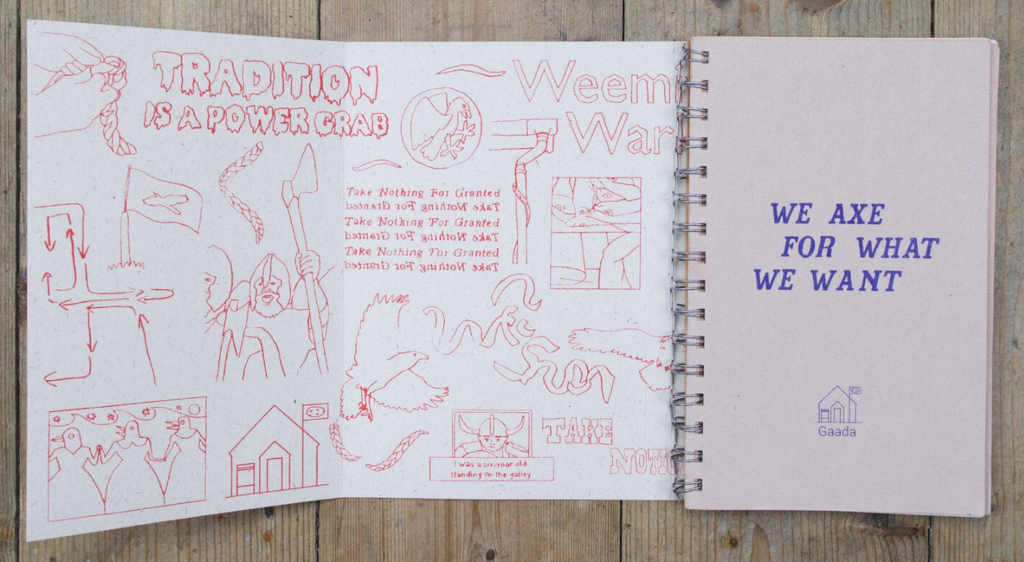 TRADITION
IS A POWER GRAB
Weem
War
Take Nothing For Granted
Take Nothing For Granted
Take Nothing For Granted
Take Nothing For Granted
Take Nothing For Granted
Take Nothing For Granted
I was a six-year old
standing on the galley
TAKE
NOTI
WE AXE
FOR WHAT
WE WANT
Gaada